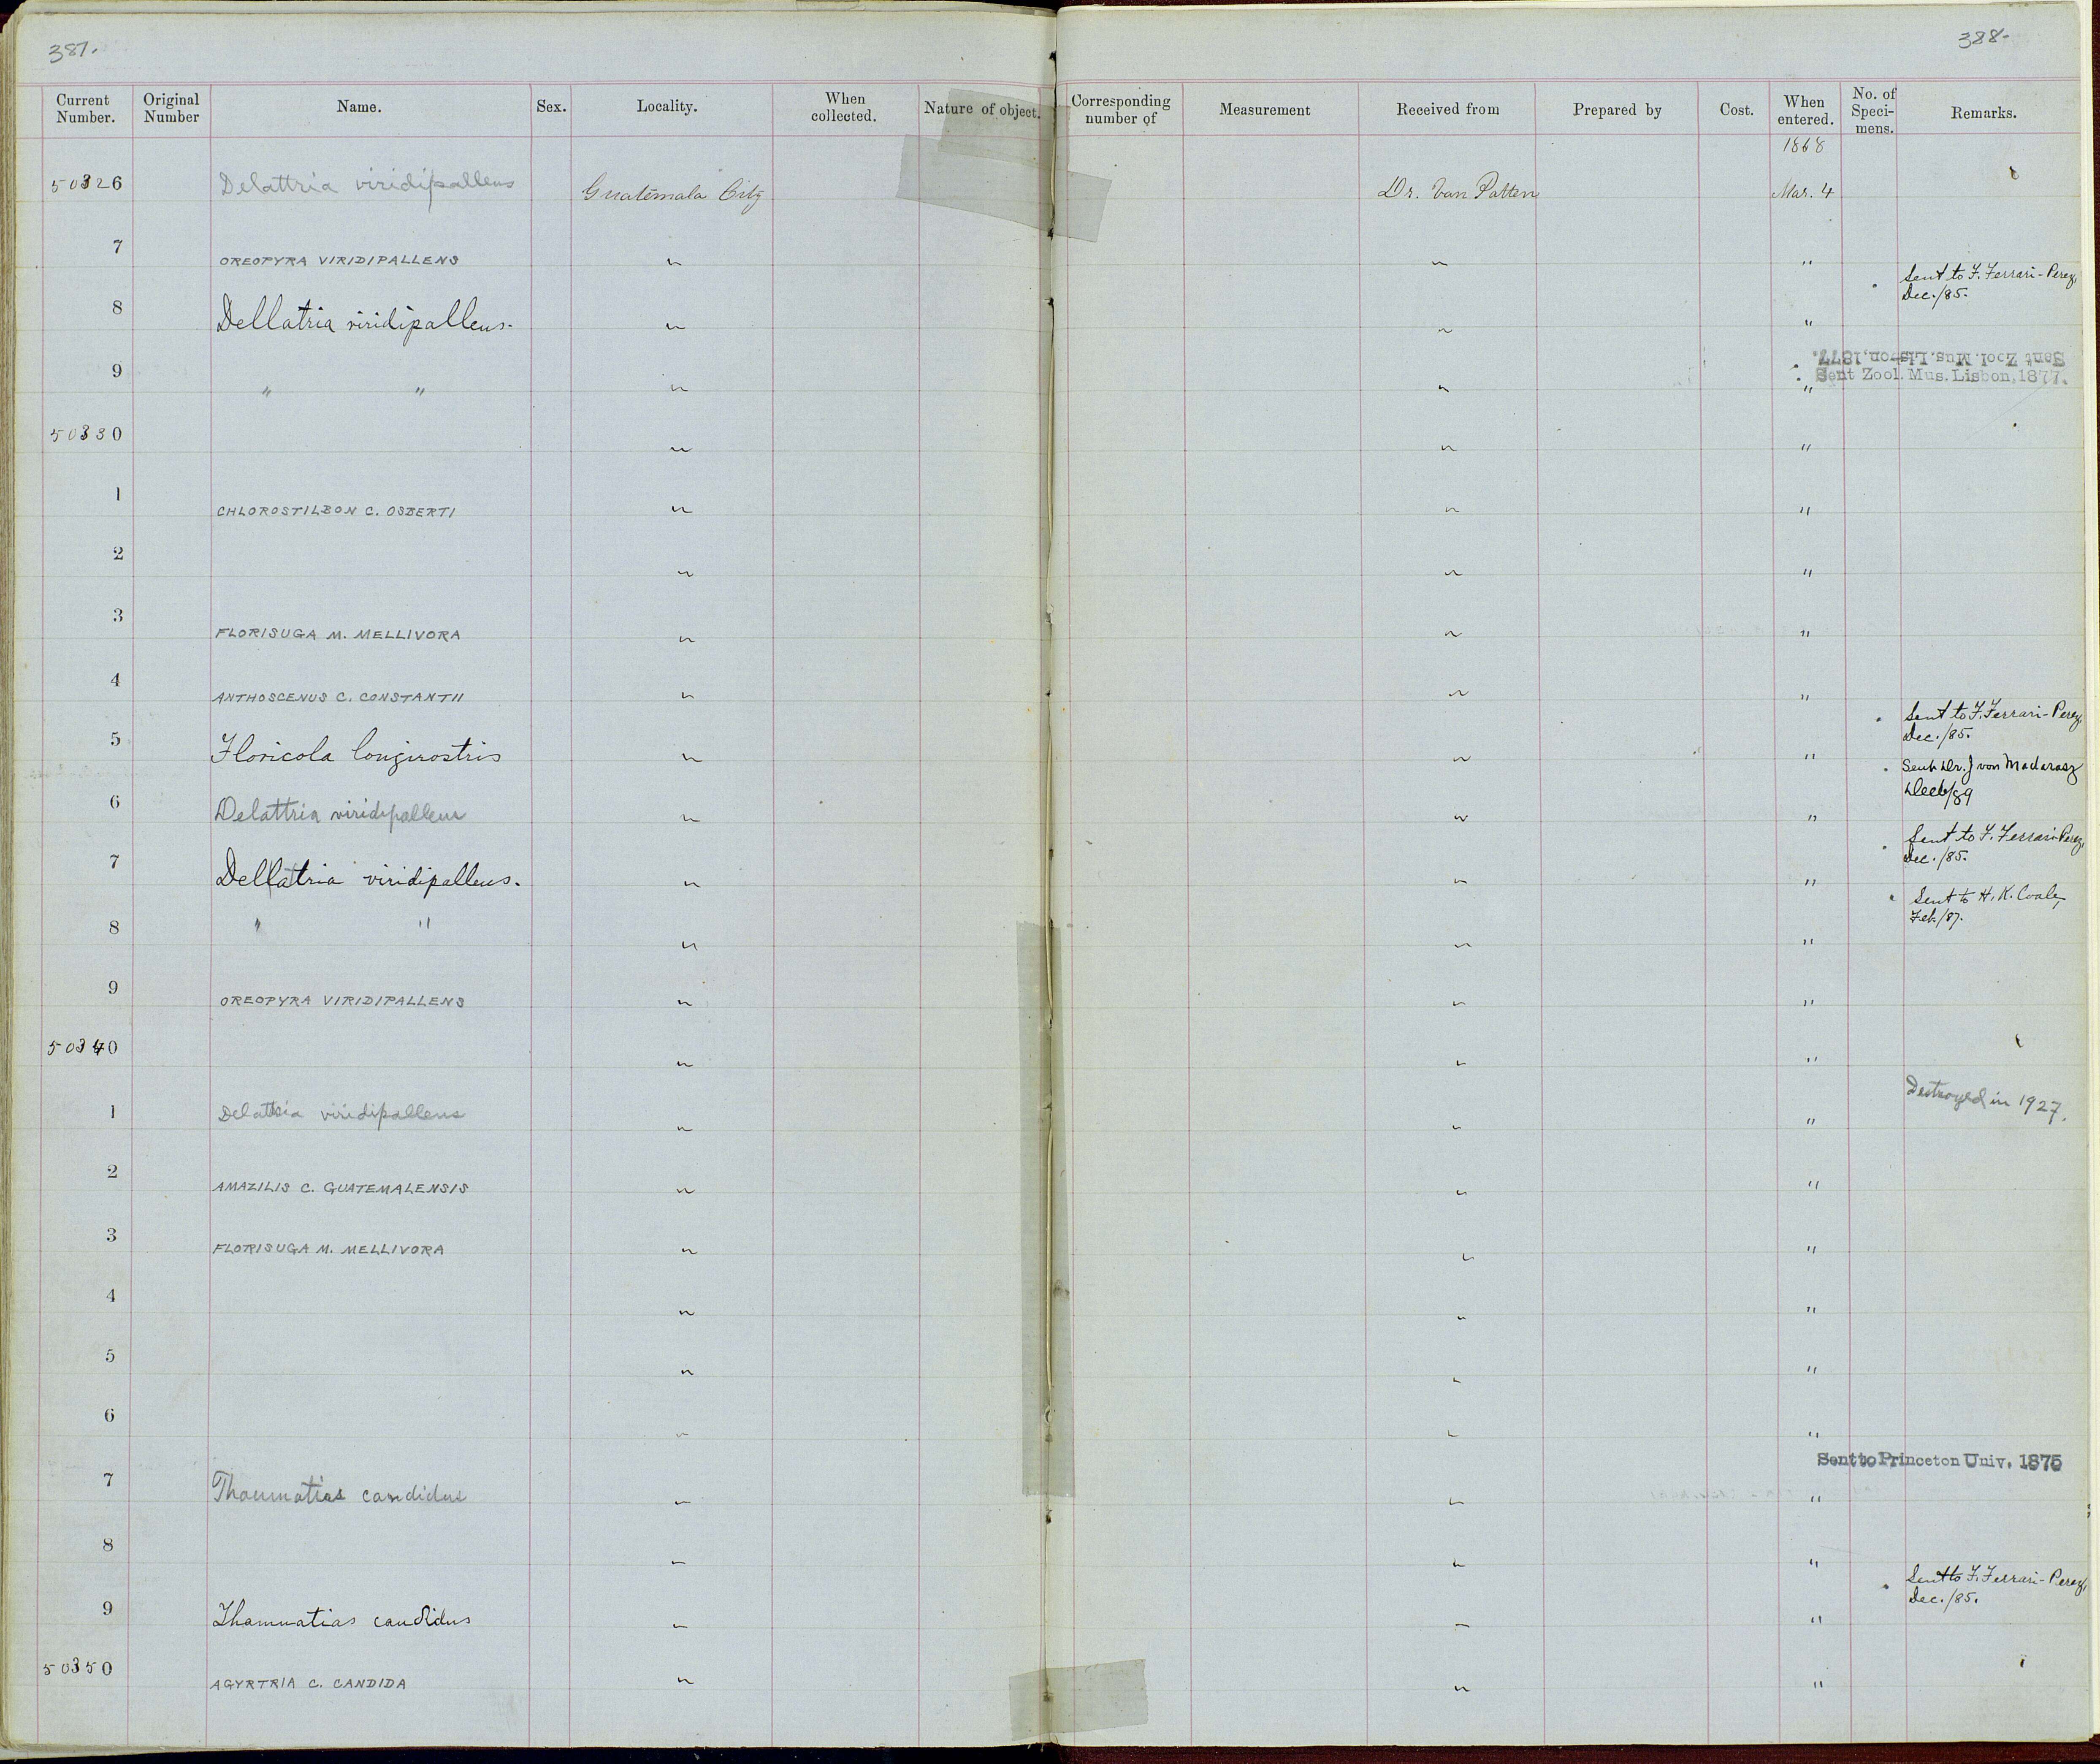 387.
388-
Current Number. Original Number Name. Sex. Locality. When collected. Nature of object. Corresponding number of Measurement Received from Prepared by Cost. When entered. No. of Speci-mens. Remarks.
1868
50326 Delattria viridipallens Guatemala City Dr. Van Patten Mar. 4
7 OREOPYRA VIRIDIPALLENS " " "
Sent to F. Ferrari-Perez,
Dec./85.
8 Dellatria viridipallens. " " "
Sent Zool. Mus. Lisbon, 1877.
Sent Zool. Mus. Lisbon, 1877.
9 " " " " "
50330 " " "
1 CHLOROSTILBON C. OSBERTI " " "
2 " " "
3 FLORISUGA M. MELLIVORA " " "
4 ANTHOSCENUS C. CONSTANTII " " "
Sent to F. Ferrari-Perez,
Dec./85.
5 Floricola longirostris " " "
Sent Dr. J von Madarasz
Dec6/89
6 Delattria viridipallens " " "
Sent to F. Ferrari-Perez,
Dec./85.
7 Dellatria viridipallens. " " "
Sent to H. K. Coale,
Feb./87.
8 " " " " "
9 OREOPYRA VIRIDIPALLENS " " "
50340 " " "
Destroyed in 1927.
1 Delattria viridipallens " " "
2 AMAZILIS C. GUATEMALENSIS " " "
3 FLORISUGA M. MELLIVORA " " "
4 " " "
5 " " "
6 " " "
Sent to Princeton Univ. 1875
7 Thaumatias candidus " " "
8 " " "
Sent to F. Ferrari-Perez,
Dec./85.
9 Thaumatias candidus " " "
50350 AGYRTRIA C. CANDIDA " " "